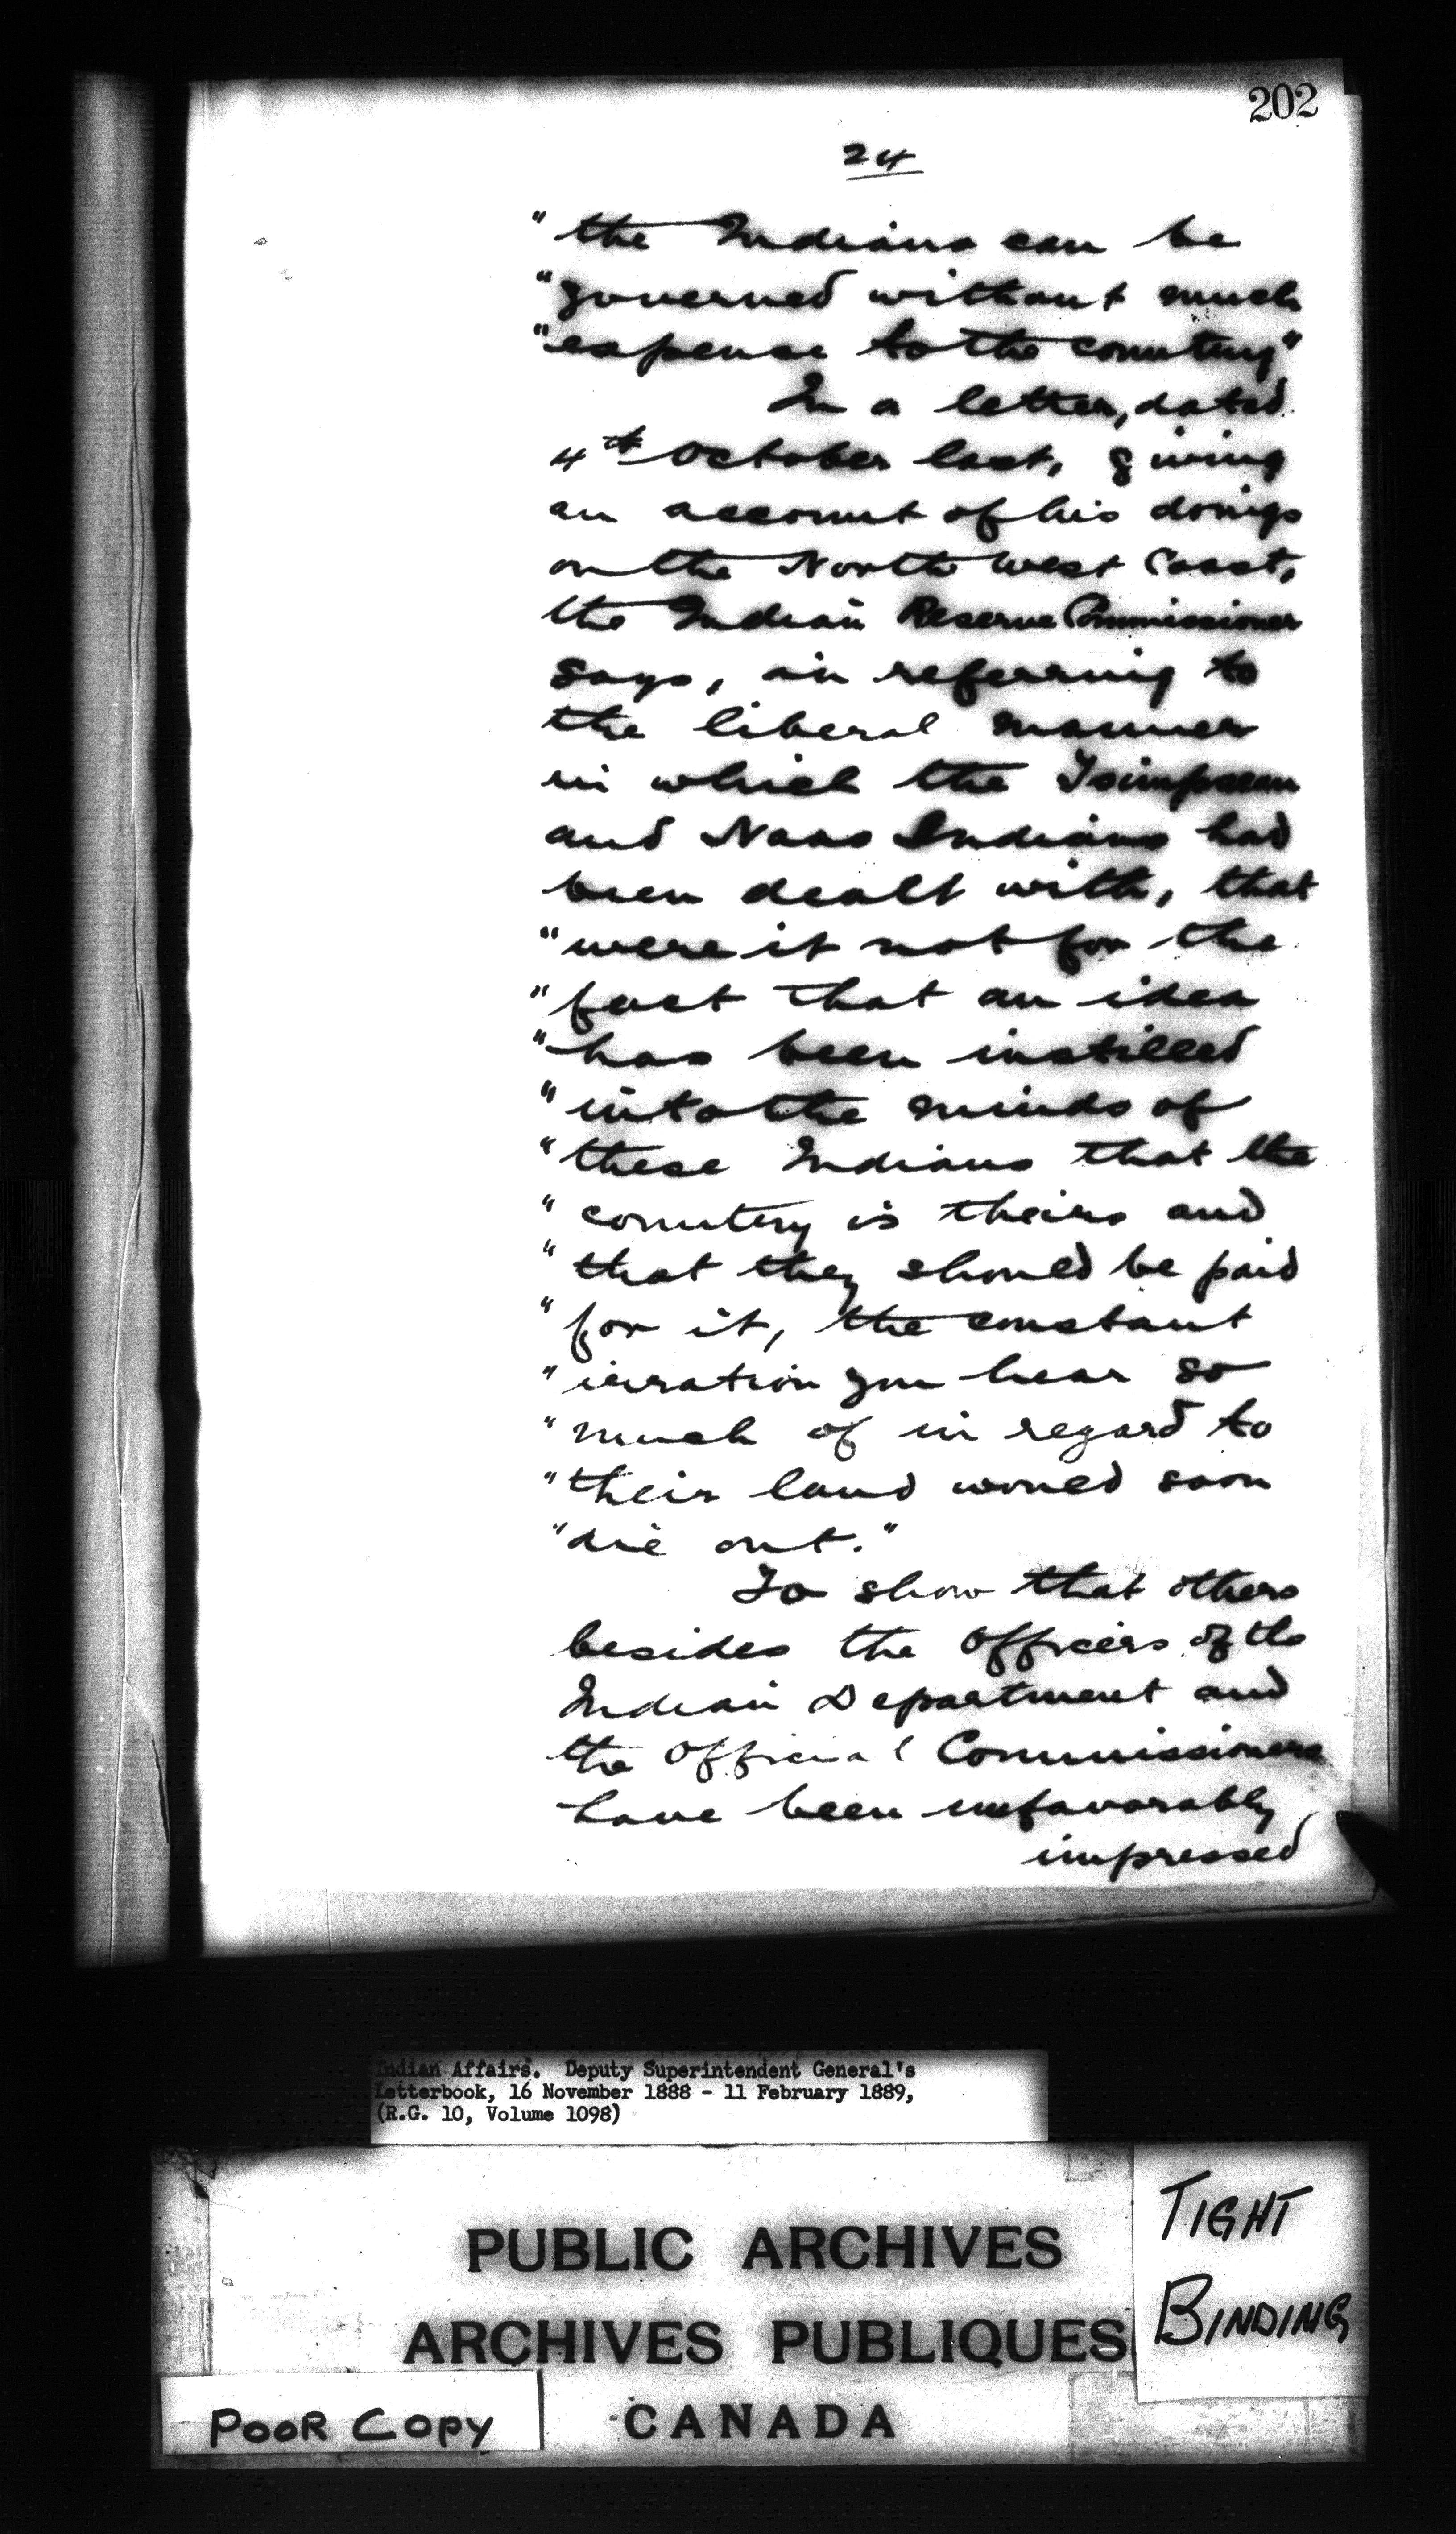 202
24
"the Indians can be
"governed without much
"expense to the country"
In a letter, dated
4th October last, giving
an account of his doings
on the North West Coast,
the Indian Reserve Commissioner
says, in referring to
the liberal manner
in which the Tsimpsean
and Naas Indians had
been dealt with, that
"were it not for the
"fact that an idea
"has been instilled
"into the minds of
"these Indians that the
"country is theirs and
"that they should be paid
"for it, the constant
"you hear so
"much of in regard to
"their land would soon
"die out."
To show that others
besides the Officers of the
Indian Department and
the Official Commissioners
have been unfavorably
impressed
Indian Affairs. Deputy Superintendent General's
Letterbook, 16 November 1888 - 11 February 1889,
(R.G. 10, Volume 1098)
PUBLIC ARCHIVES
ARCHIVES PUBLIQUES
CANADA
TIGHT
BINDING
POOR COPY